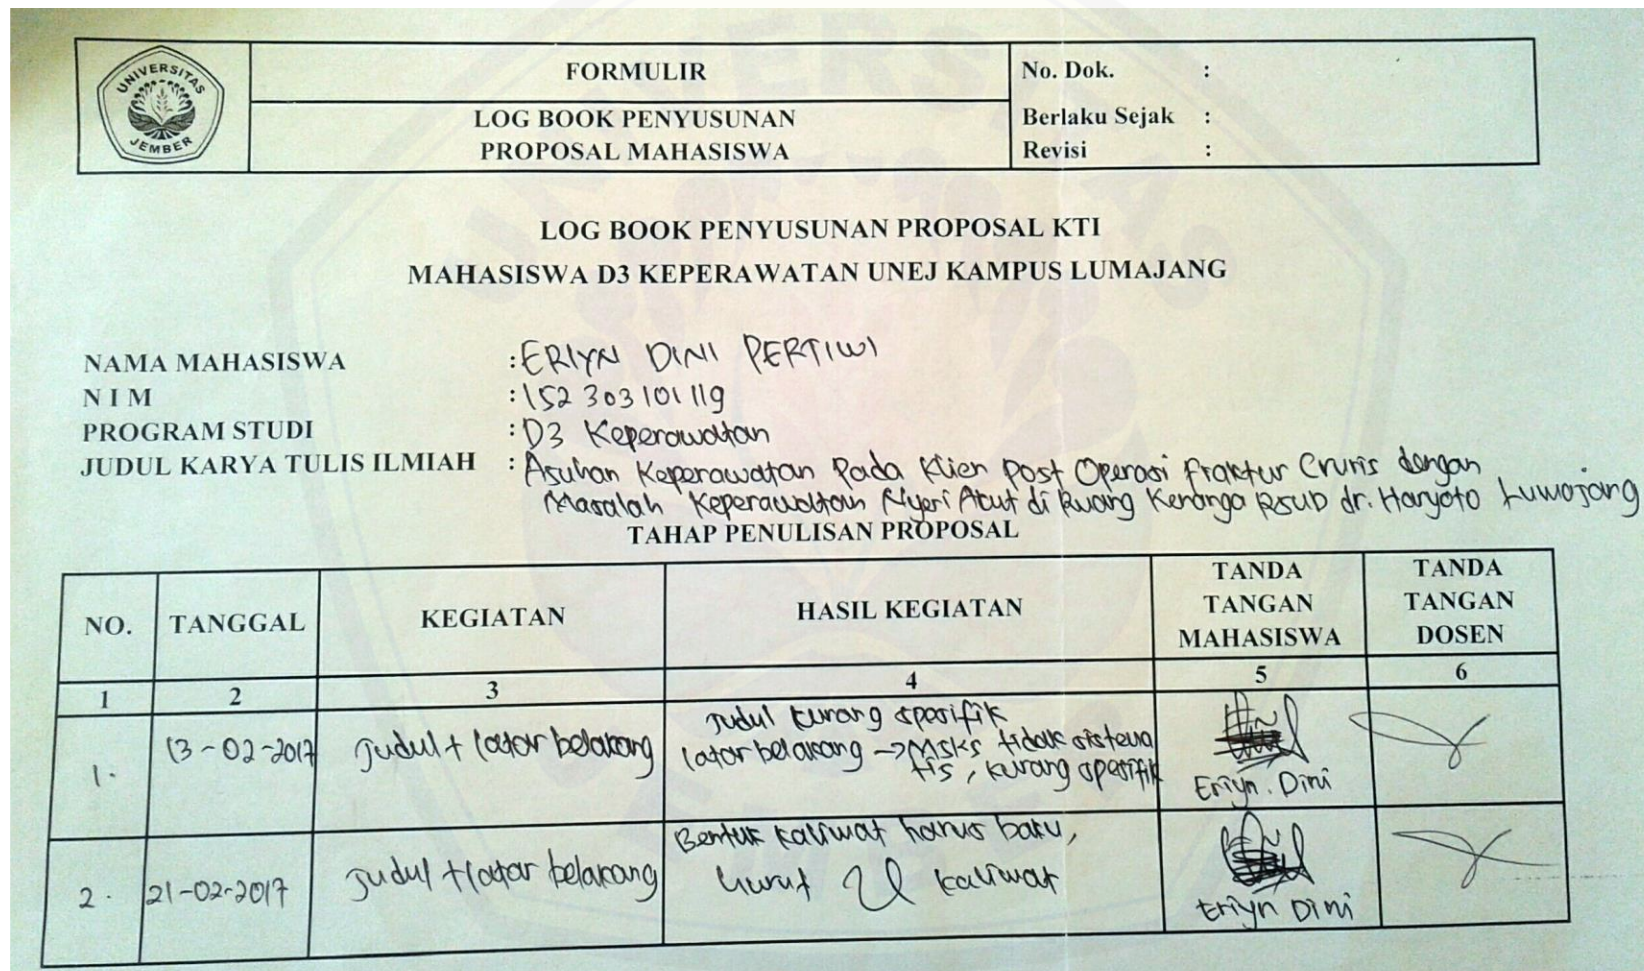 UNIVERSITAS
JEMBER
FORMULIR
LOG BOOK PENYUSUNAN
PROPOSAL MAHASISWA
No. Dok. :
Berlaku Sejak :
Revisi :
LOG BOOK PENYUSUNAN PROPOSAL KTI
MAHASISWA D3 KEPERAWATAN UNEJ KAMPUS LUMAJANG
NAMA MAHASISWA : ERIYN DINI PERTIWI
N I M : 152303101119
PROGRAM STUDI : D3 Keperawatan
JUDUL KARYA TULIS ILMIAH : Asuhan Keperawatan Pada Klien Post Operasi Fraktur Cruris dengan
Masalah Keperawatan Nyeri Akut di Ruang Kenanga RSUD dr. Haryoto Lumajang
TAHAP PENULISAN PROPOSAL
NO. TANGGAL KEGIATAN HASIL KEGIATAN TANDA TANGAN MAHASISWA TANDA TANGAN DOSEN
1 2 3 4 5 6
1. 13-02-2017 Judul + latar belakang Judul kurang spesifik
latar belakang -> MSKS tidak sistema
tis, kurang spesifik
Eriyn. Dini
2. 21-02-2017 Judul + latar belakang Bentuk kalimat harus baku,
huruf kalimat
Eriyn Dini